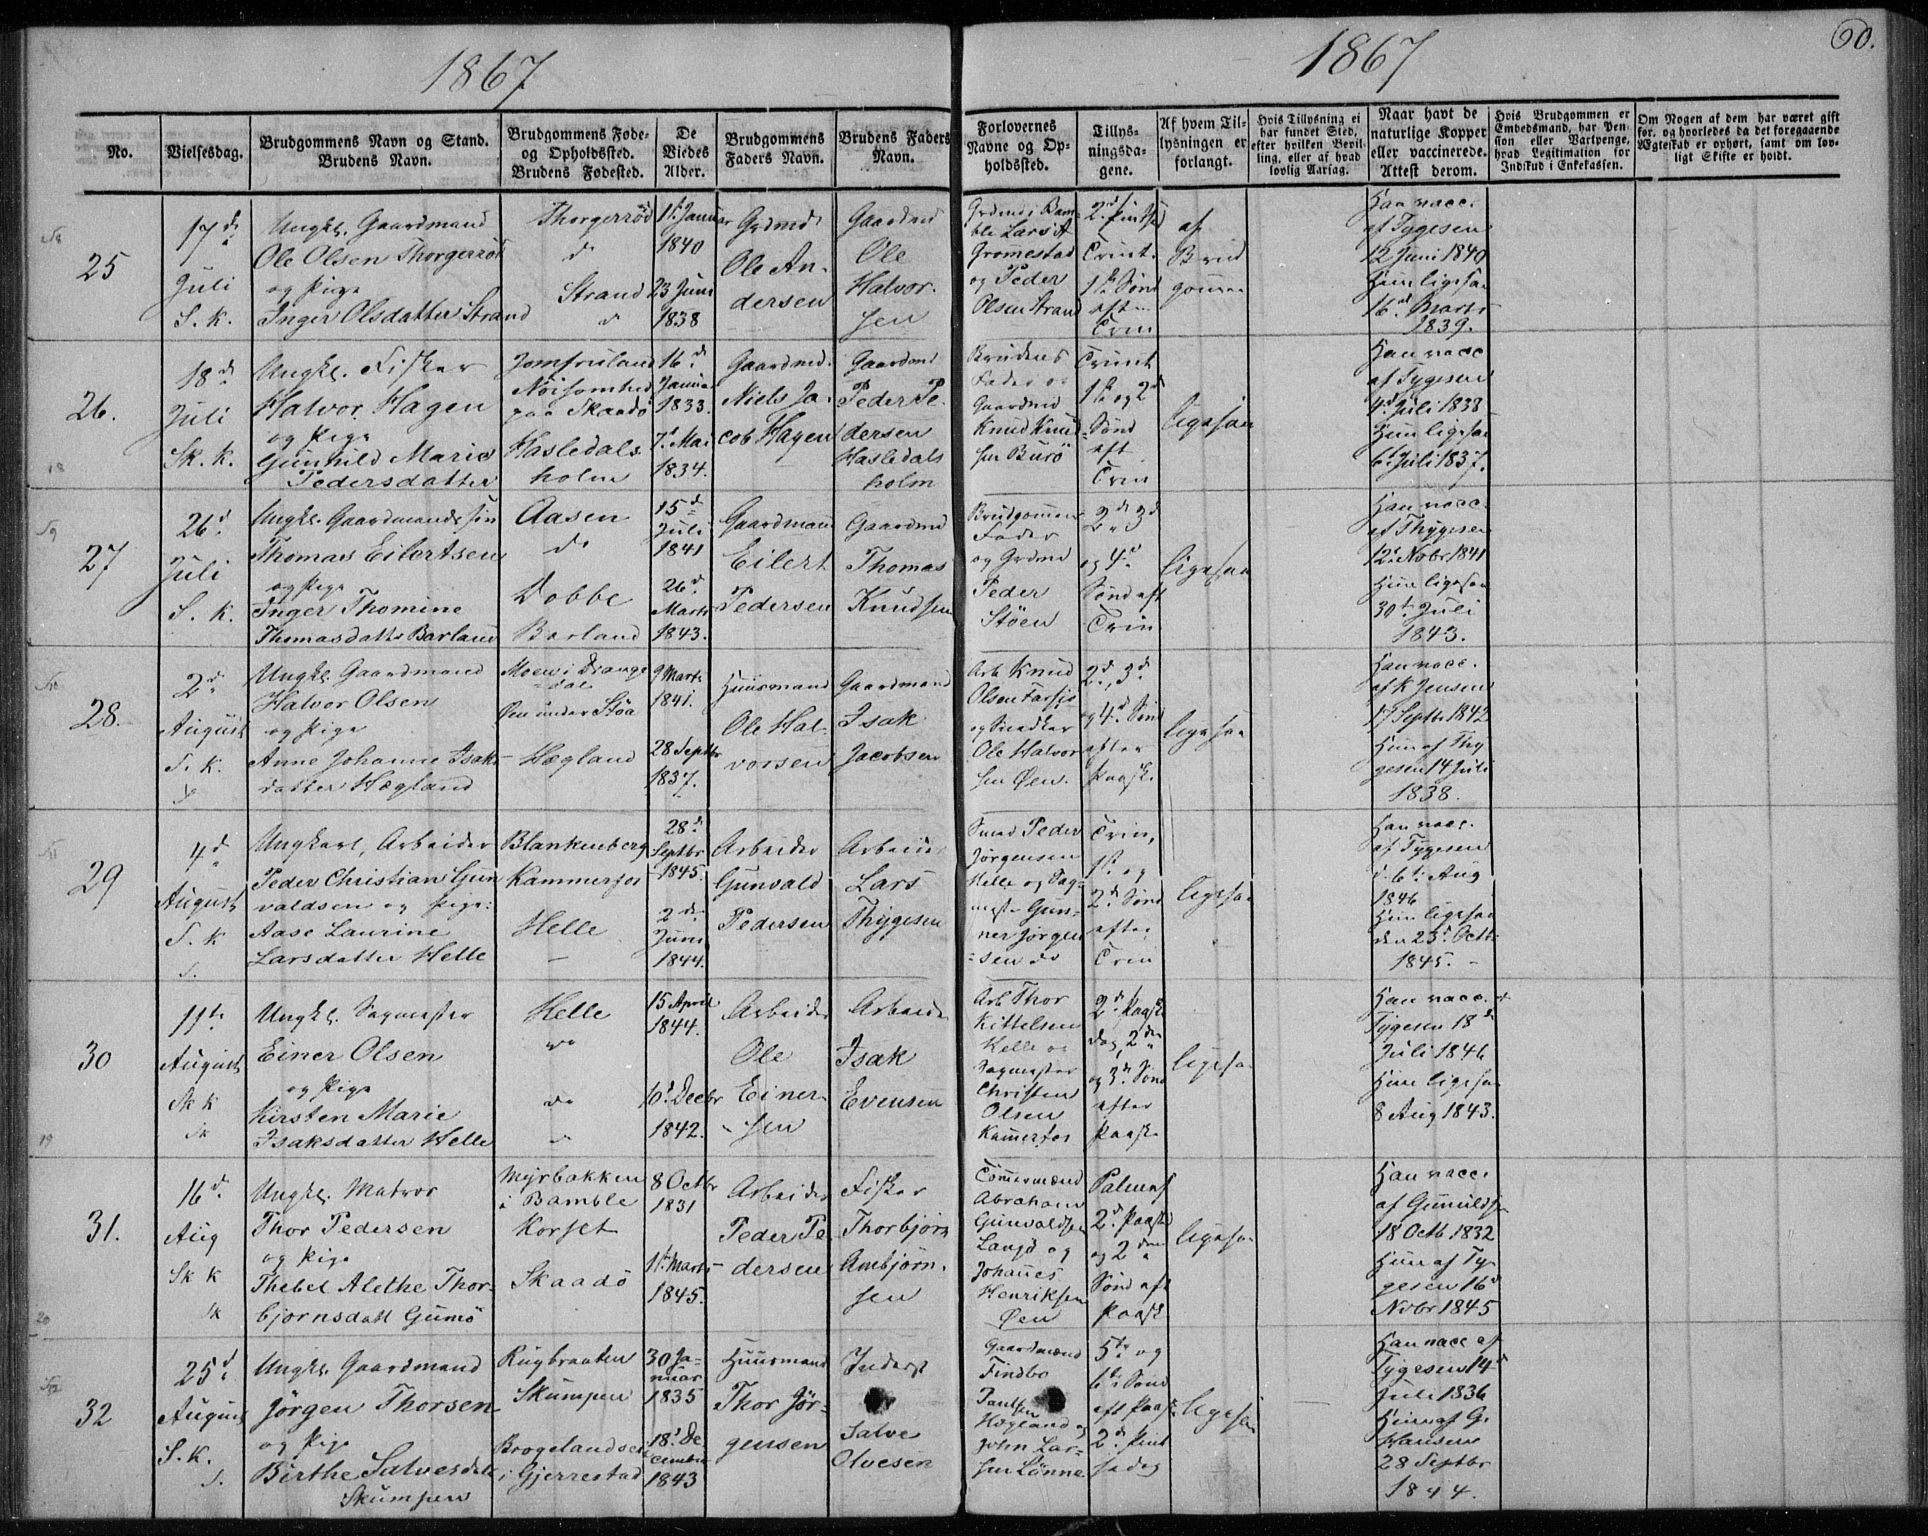 1867
1867
60.
No.
Vielsesdag.
Brudgommens Navn og Stand.
Brudens Navn.
Brudgommens Føde-
og Opholdssted.
Brudens Fødested.
De
Viedes
Alder.
Brudgommens
Faders Navn.
Brudens Faders
Navn.
Forlovernes
Navne og Op-
holdssted.
Tillys-
ningsda-
gene.
Af hvem Til-
lysningen er
forlangt.
Hvis Tillysning ei
har fundet Sted,
efter hvilken Bevil-
ling, eller af hvad
lovlig Aarsag.
Naar havt de
naturlige Kopper
eller vaccinerede.
Attest derom.
Hvis Brudgommen er
Embedsmand, har Pen-
sion eller Vartpenge,
hvad Legitimation for
Indskud i Enkekassen.
Om Nogen af dem har været gift
før, og hvorledes da det foregaaende
Ægteskab er ophørt, samt om lov-
ligt Skifte er holdt.
25
17d
Juli
S. k.
Ungkl. Gaardmand
Ole Olsen Thorgerrød
og Pige
Inger Olsdatter Strand
Thorgerrød
do
Strand
do
1st Januar
1840
23 Juni
1838
Grdmd
Ole An-
dersen
Gaardmd
Ole
Halvor-
sen
Grdmd i Bam-
ble Lars A
Gromestad
og Peder
Olsen Strand
2d Pintsed
Trint.
1ste Sønd
efter
Trin
af
Brud
gommen
Han vacc.
af Tygesen
12 Juni 1840
Hun ligesaa
16d Marts
1839.
26.
18d
Juli
Sk. k.
18
Ungkl. Fisker
Halvor Hagen
og Pige
Gunhild Marie
Pedersdatter
Jomfruland
Nøisomhed
paa Skaadø
Hasledals
holm
16d
Janua
1833.
7d Mai
1834.
Gaardmd.
Niels Ja-
cob Hagen
Gaardmd
Peder Pe-
dersen
Hasledals
holm
Brudens
Fader og
Gaardmd
Knud Knud
sen Burø
Trinit
1ste og 2d
Sønd
eft
Trin
ligesaa
Han vacc
af Tygesen
4d Juli 1838
Hun ligesaa
6t Juli 1837.
27
26d
Juli
S. k.
Ungkl. Gaardmandssøn
Thomas Eilertsen
og Pige
Inger Thomine
Thomasdattr Barland
Aasen
do
Dobbe
Barland
15d
Juli
1841
26d
Marts
1843.
Gaardmand
Eilert
Pedersen
Gaardmd
Thomas
Knudsen
Brudgommens
Fader
og Grdmd
Peder
Støen
2d, 3d
og 4d
Sønd eft
Trin
ligesaa
Han vacc.
af Thygesen
12t Novbr 1841
Hun ligesaa
30t Juli
1843.
28.
2d
August
S. k.
Ungkl. Gaardmand
Halvor Olsen
og Pige
Anne Johanne Isak-
datter Hægland
Moen i Drange
dal
Øen under Støa
Hægland
9 Marts
1841.
28 Septbr
1837.
Huusmand
Ole Hal-
vorsen
Gaardmand
Isak
Jacobsen
Arb Knud
Olsen Farsjø
og Snedker
Ole Halvor
sen Øen.
2d, 3d
og 4d Sønd
efter
Paaske
ligesaa
Han vacc.
af K Jensen
17 Septbr 1842
Hun af Thy
gesen 14 Juli
1838.
29
4d
August
S. k
S.
Ungkarl, Arbeider
Peder Christian Gun
valdsen og Pige:
Aase Laurine
Larsdatter Helle
Blankenberg
Kammerfos
Helle
28d
Septbr
1845.
2den
Juni
1844.
Arbeider
Gunvald
Pedersen
Arbeider
Lars
Thygesen
Smed Peder
Jørgensen
Helle og Sag-
mest. Gun-
ner Jørgen
sen do
Trin,
1st og
2d Sønd
efter
Trin
ligesaa
Han vacc.
af Tygesen
d. 6t Aug
1846
Hun ligesaa
den 25d Octb
1845.
30
11te
August
Sk k
Sk
19
Ungkl. Sagmester
Einer Olsen
og Pige
Kirsten Marie
Isaksdatter Helle
Helle
do
do
15 April
1844.
10d Decbr
1842.
Arbeider
Ole
Einer-
sen
Arbeider
Isak
Evensen
Arb Thor
Kittelsen
Helle og
Sagmester
Christen
Olsen
Kamerfos
2d Paaske
dag, 2den
og 3d Sønd
efter
Paaske
ligesaa
Han vacc. af
Tygesen 18d
Juli 1846
Hun ligesaa
8 Aug 1843.
31.
16d
Aug
Sk k
Sk
20
Ungkl. Matros
Thor Pedersen
og Pige
Thebel Alethe Thor-
bjørnsdatt Gumø
Myrbakken
i Bamble
Korset
Skaadø
8 Octbr
1831
11te Marts
1845.
Arbeider
Peder Pe
dersen
Fisker
Thorbjørn
Ambjørn-
sen
Tømmermand
Abraham
Gunvaldsen
Langø og
Johannes
Henriksen
Øen
Palmes
2d Paaske
og 2den
Sønd eft
Paask
ligesaa
Han vacc.
af Gunuldsen
18 Octb 1832
Hun af Ty-
gesen 16d
Novbr 1845
32
25d
August
S. k.
S.
Ungkl. Gaardmand
Jørgen Thorsen
og Pige
Birthe Salvesdatt
Skumpen
Rugbraaten
Skumpen
Brøgelandseie
i Gjerrestad
30 Ja-
nuar
1835
18d De-
cember
1843
Huusmand
Thor Jør-
gensen
Inderst
Salve
Olvesen
Gaardmand
Findbo
Paulsen
Hægland og
John Lar-
sen Lønne
5te og
6te Sønd
eft Paask
2d Pint
sedag
ligesaa
Han vacc af
Tygesen 14d
Juli 1836
Hun af G.
Hansen
28 Septbr
1844.